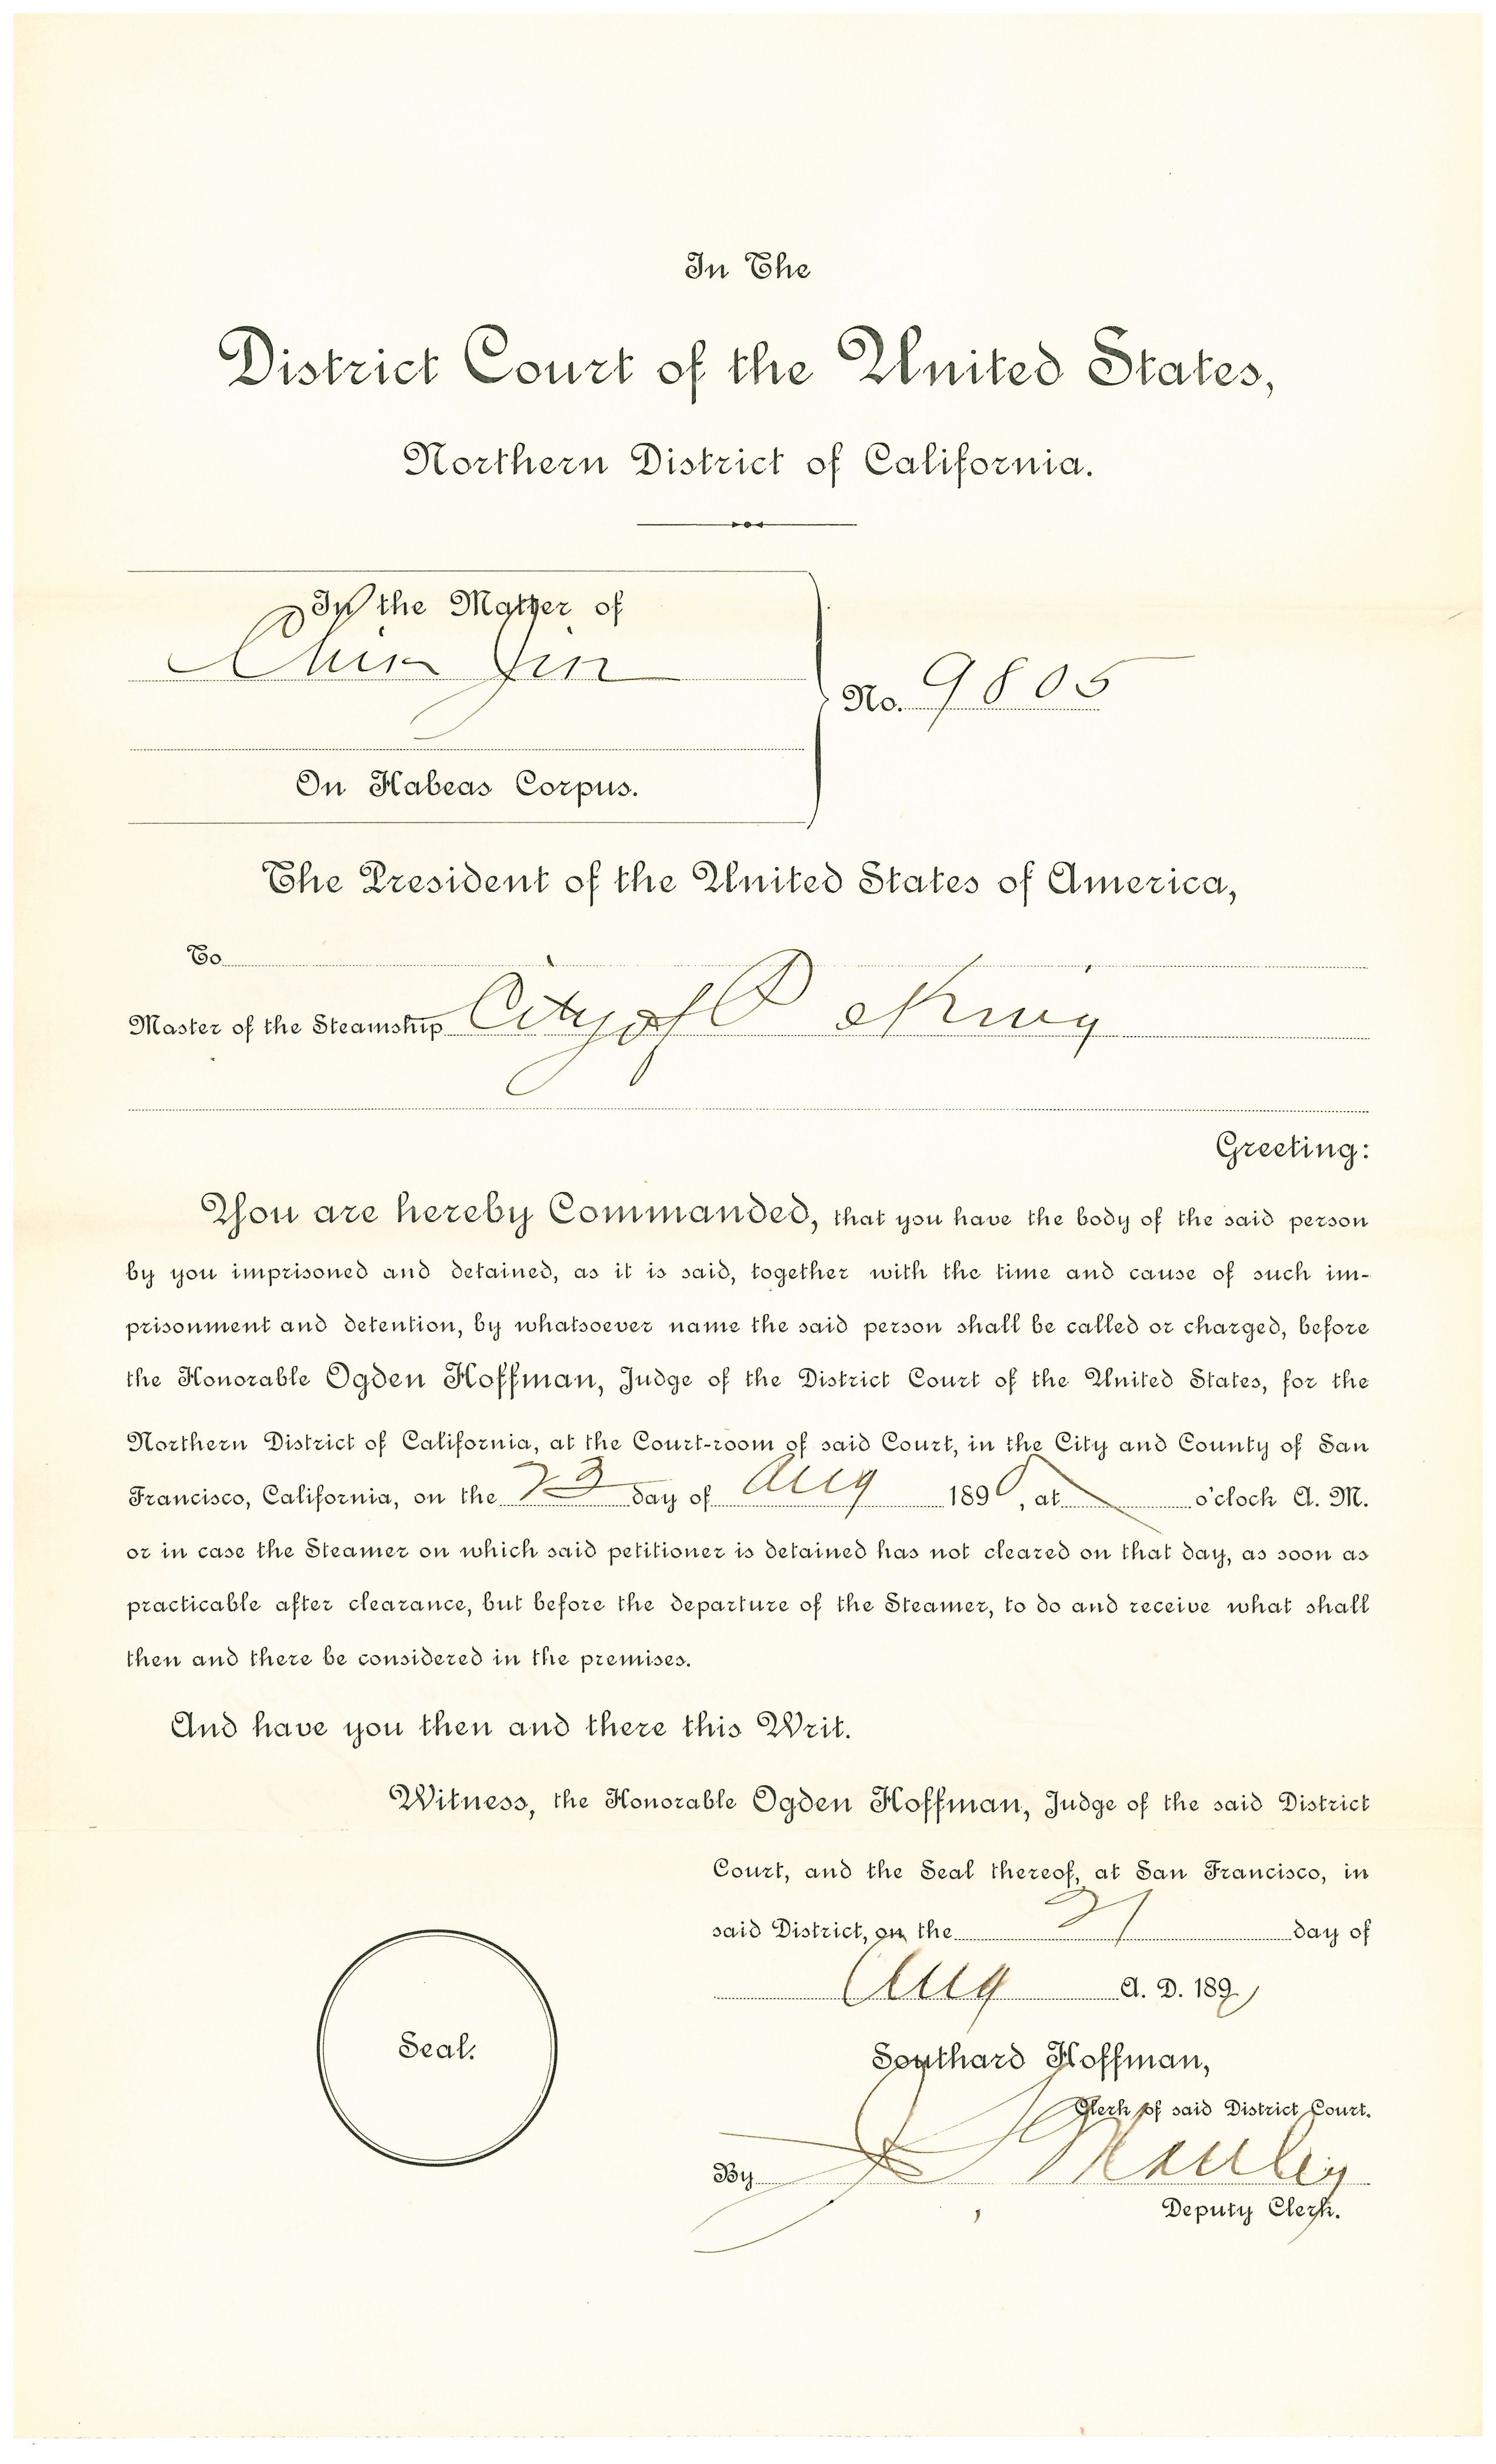 In The
District Court of the United States,
Northern District of California.
In the Matter of
Chin Jin
No. 9805
On Habeas Corpus.
The President of the United States of America,
To
Master of the Steamship City of Peking
Greeting:
You are hereby Commanded, that you have the body of the said person
by you imprisoned and detained, as it is said, together with the time and cause of such im-
prisonment and detention, by whatsoever name the said person shall be called or charged, before
the Honorable Ogden Hoffman, Judge of the District Court of the United States, for the
Northern District of California, at the Court-room of said Court, in the City and County of San
Francisco, California, on the 23 day of Aug 1890, at o'clock A. M.
or in case the Steamer on which said petitioner is detained has not cleared on that day, as soon as
practicable after clearance, but before the departure of the Steamer, to do and receive what shall
then and there be considered in the premises.
And have you then and there this Writ.
Witness, the Honorable Ogden Hoffman, Judge of the said District
Court, and the Seal thereof, at San Francisco, in
said District, on the 21 day of
Aug A. D. 189
Seal.
Southard Hoffman,
Clerk of said District Court.
By
Deputy Clerk.